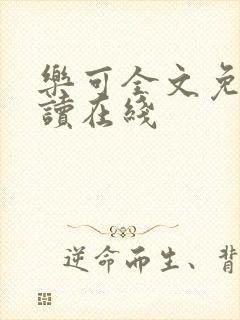 樂可全文免
讀在綫
逆命而生、背